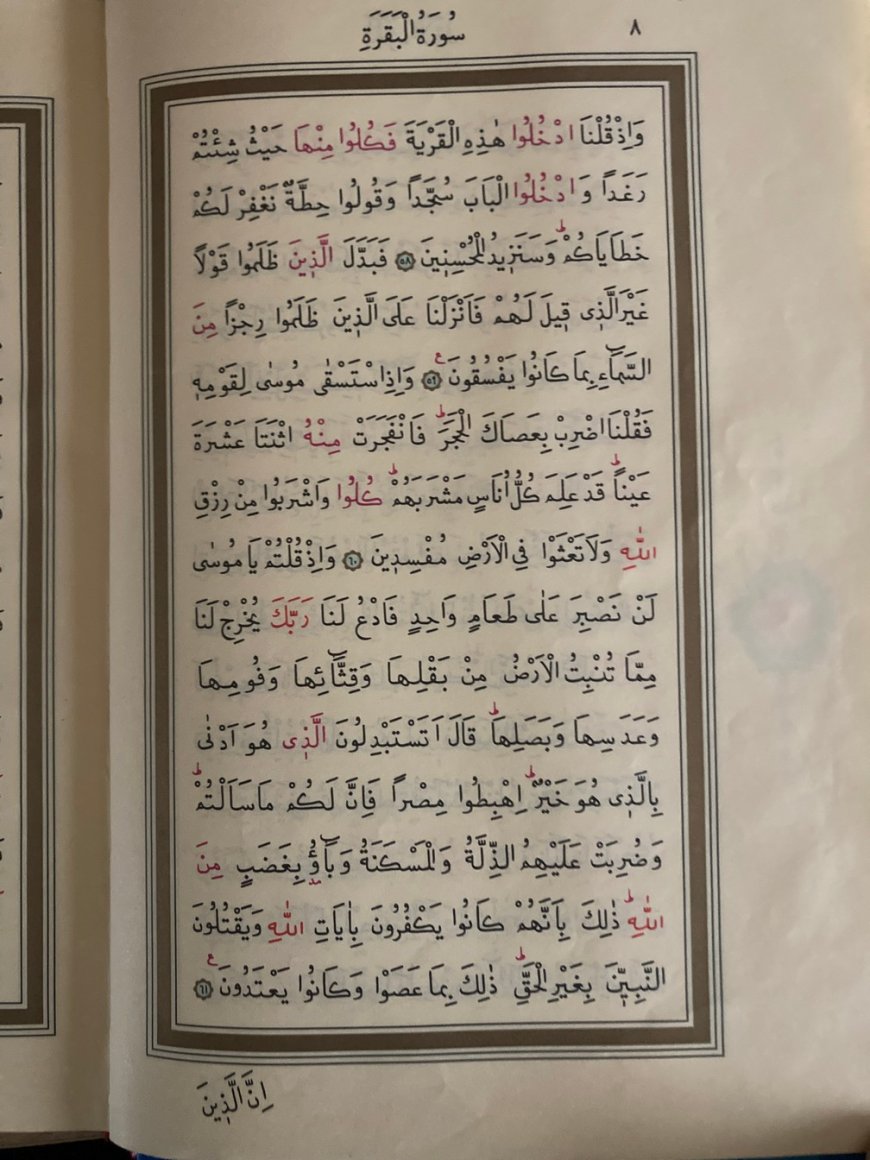 سُورَةُ الْبَقَرَةِ ٨
وَاِذْ قُلْنَا ادْخُلُوا هٰذِهِ الْقَرْيَةَ فَكُلُوا مِنْهَا حَيْثُ شِئْتُمْ
رَغَداً وَادْخُلُوا الْبَابَ سُجَّداً وَقُولُوا حِطَّةٌ نَغْفِرْ لَكُمْ
خَطَايَاكُمْۜ وَسَنَز۪يدُ الْمُحْسِن۪ينَ ﴿٥٨﴾ فَبَدَّلَ الَّذ۪ينَ ظَلَمُوا قَوْلاً
غَيْرَ الَّذ۪ي ق۪يلَ لَهُمْ فَاَنْزَلْنَا عَلَى الَّذ۪ينَ ظَلَمُوا رِجْزاً مِنَ
السَّمَٓاءِ بِمَا كَانُوا يَفْسُقُونَ۟ ﴿٥٩﴾ وَاِذِ اسْتَسْقٰى مُوسٰى لِقَوْمِه۪
فَقُلْنَا اضْرِبْ بِعَصَاكَ الْحَجَرَۜ فَانْفَجَرَتْ مِنْهُ اثْنَتَا عَشْرَةَ
عَيْناًۜ قَدْ عَلِمَ كُلُّ اُنَاسٍ مَشْرَبَهُمْۜ كُلُوا وَاشْرَبُوا مِنْ رِزْقِ
اللّٰهِ وَلَا تَعْثَوْا فِي الْاَرْضِ مُفْسِد۪ينَ ﴿٦٠﴾ وَاِذْ قُلْتُمْ يَا مُوسٰى
لَنْ نَصْبِرَ عَلٰى طَعَامٍ وَاحِدٍ فَادْعُ لَنَا رَبَّكَ يُخْرِجْ لَنَا
مِمَّا تُنْبِتُ الْاَرْضُ مِنْ بَقْلِهَا وَقِثَّٓائِهَا وَفُومِهَا
وَعَدَسِهَا وَبَصَلِهَاۜ قَالَ اَتَسْتَبْدِلُونَ الَّذ۪ي هُوَ اَدْنٰى
بِالَّذ۪ي هُوَ خَيْرٌۜ اِهْبِطُوا مِصْراً فَاِنَّ لَكُمْ مَا سَاَلْتُمْۜ
وَضُرِبَتْ عَلَيْهِمُ الذِّلَّةُ وَالْمَسْكَنَةُ وَبَٓاؤُ۫ بِغَضَبٍ مِنَ
اللّٰهِۜ ذٰلِكَ بِاَنَّهُمْ كَانُوا يَكْفُرُونَ بِاٰيَاتِ اللّٰهِ وَيَقْتُلُونَ
النَّبِيّ۪نَ بِغَيْرِ الْحَقِّۜ ذٰلِكَ بِمَا عَصَوْا وَكَانُوا يَعْتَدُونَ۟ ﴿٦١﴾
اِنَّ الَّذ۪ينَ